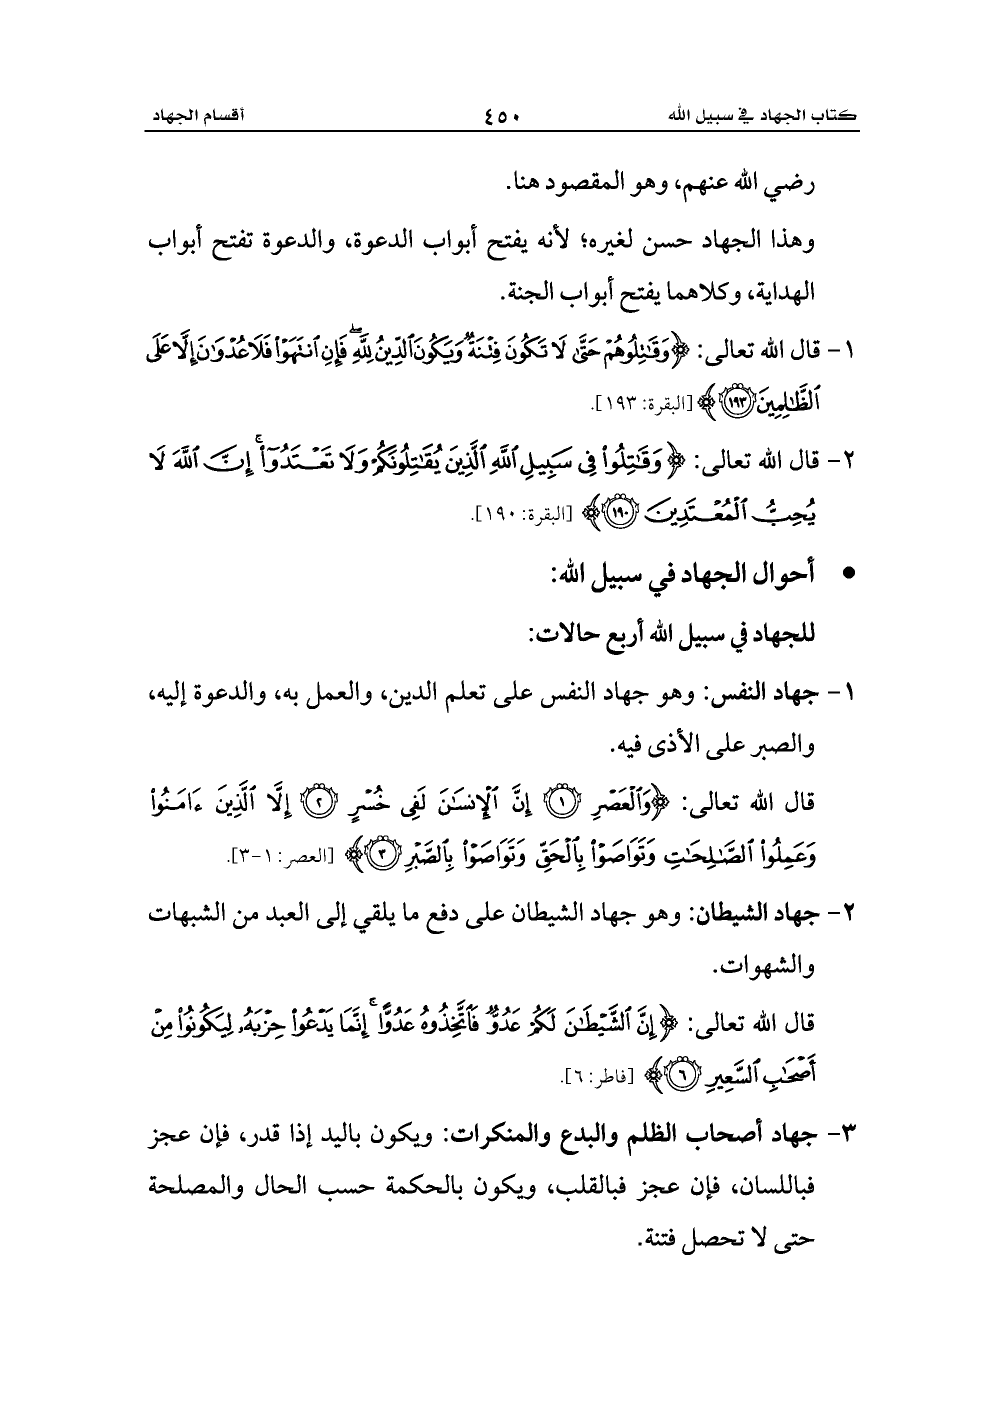 كتاب الجهاد في سبيل الله ٤٥٠ أقسام الجهاد
رضي الله عنهم، وهو المقصود هنا.
وهذا الجهاد حسن لغيره؛ لأنه يفتح أبواب الدعوة، والدعوة تفتح أبواب
الهداية، وكلاهما يفتح أبواب الجنة.
١- قال الله تعالى: ﴿وَقَٰتِلُوهُمۡ حَتَّىٰ لَا تَكُونَ فِتۡنَةٞ وَيَكُونَ ٱلدِّينُ لِلَّهِۖ فَإِنِ ٱنتَهَوۡاْ فَلَا عُدۡوَٰنَ إِلَّا عَلَى
ٱلظَّٰلِمِينَ ١٩٣﴾ [البقرة: ١٩٣].
٢- قال الله تعالى: ﴿وَقَٰتِلُواْ فِي سَبِيلِ ٱللَّهِ ٱلَّذِينَ يُقَٰتِلُونَكُمۡ وَلَا تَعۡتَدُوٓاْۚ إِنَّ ٱللَّهَ لَا
يُحِبُّ ٱلۡمُعۡتَدِينَ ١٩٠﴾ [البقرة: ١٩٠].
• أحوال الجهاد في سبيل الله:
للجهاد في سبيل الله أربع حالات:
١- جهاد النفس: وهو جهاد النفس على تعلم الدين، والعمل به، والدعوة إليه،
والصبر على الأذى فيه.
قال الله تعالى: ﴿وَٱلۡعَصۡرِ ١ إِنَّ ٱلۡإِنسَٰنَ لَفِي خُسۡرٍ ٢ إِلَّا ٱلَّذِينَ ءَامَنُواْ
وَعَمِلُواْ ٱلصَّٰلِحَٰتِ وَتَوَاصَوۡاْ بِٱلۡحَقِّ وَتَوَاصَوۡاْ بِٱلصَّبۡرِ ٣﴾ [العصر: ١-٣].
٢- جهاد الشيطان: وهو جهاد الشيطان على دفع ما يلقي إلى العبد من الشبهات
والشهوات.
قال الله تعالى: ﴿إِنَّ ٱلشَّيۡطَٰنَ لَكُمۡ عَدُوّٞ فَٱتَّخِذُوهُ عَدُوًّاۚ إِنَّمَا يَدۡعُواْ حِزۡبَهُۥ لِيَكُونُواْ مِنۡ
أَصۡحَٰبِ ٱلسَّعِيرِ ٦﴾ [فاطر: ٦].
٣- جهاد أصحاب الظلم والبدع والمنكرات: ويكون باليد إذا قدر، فإن عجز
فباللسان، فإن عجز فبالقلب، ويكون بالحكمة حسب الحال والمصلحة
حتى لا تحصل فتنة.